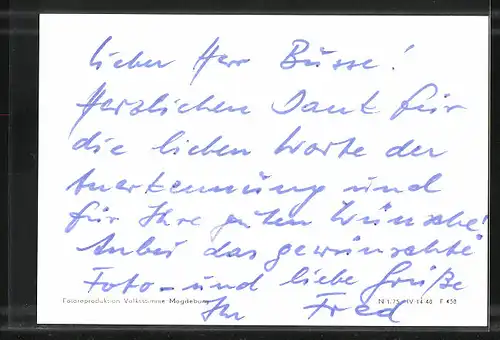 lieber Herr Büsse!
Herzlichen Dank für
die lieben Worte der
Anerkennung und
für Ihre guten Wünsche!
Anbei das gewünschte
Foto – und liebe Grüße
Fotoreproduktion Volksstimme Magdeburg
N 1/75 IV-14-48 F 450
Ihr Fred